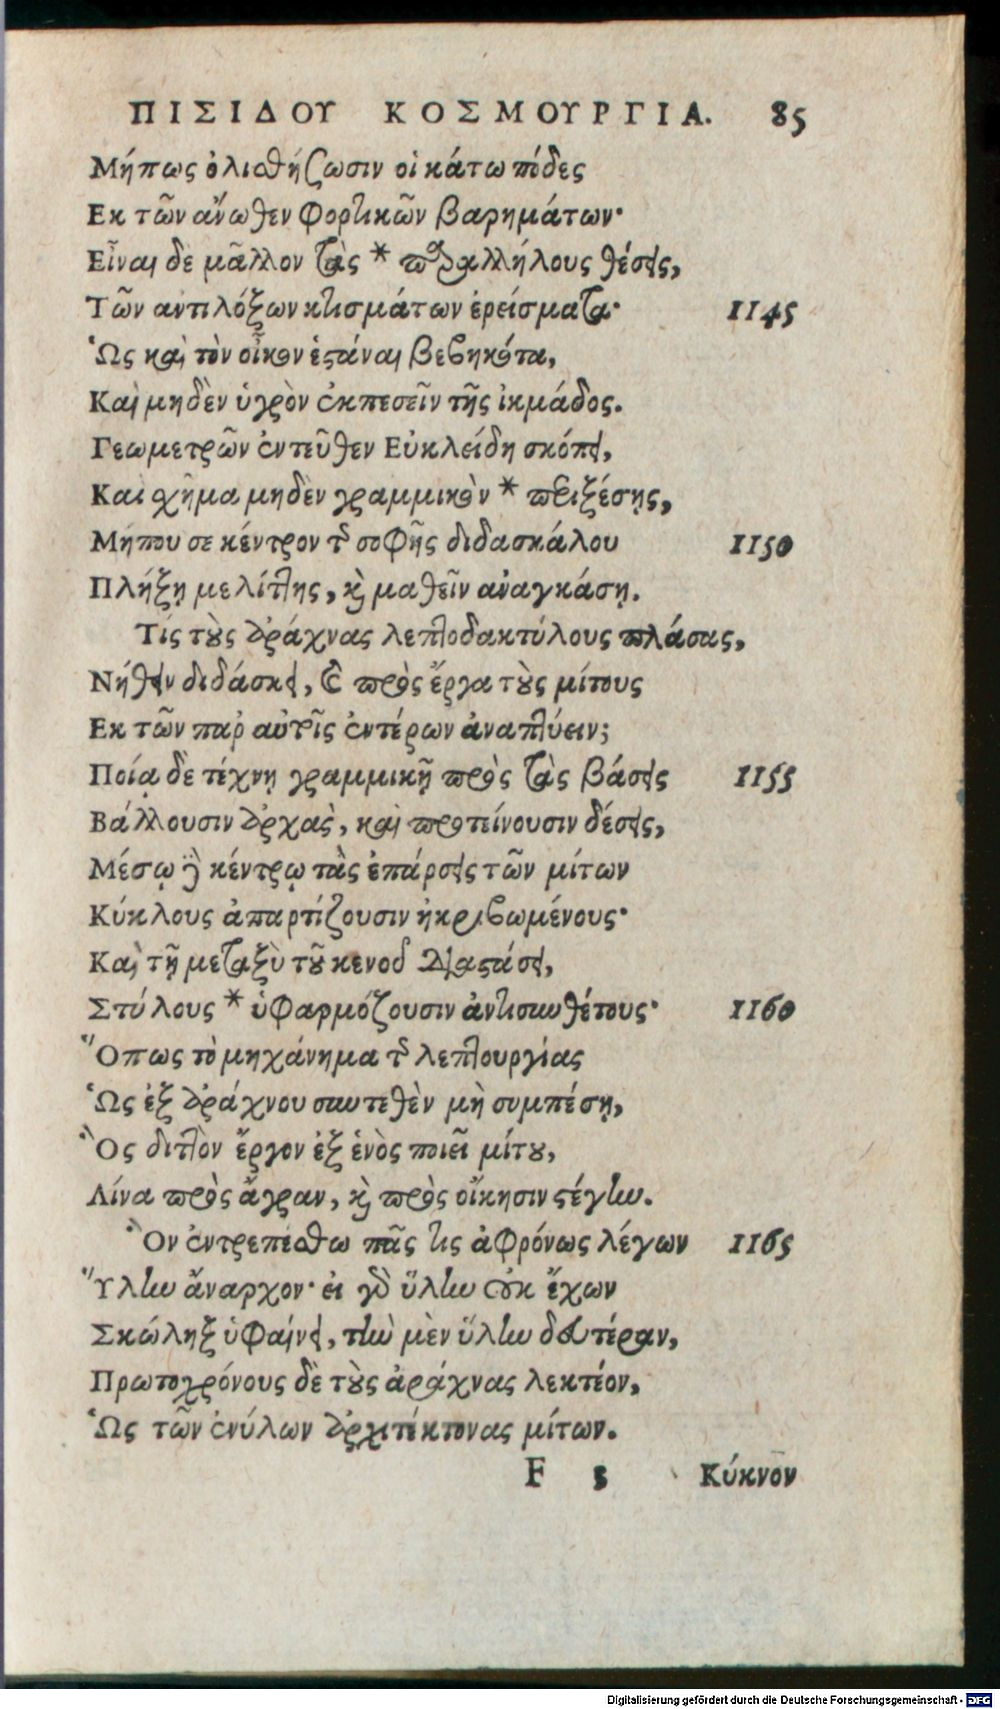 ΠΙΣΙΔΟΥ ΚΟΣΜΟΥΡΓΙΑ. 85
Μήπως ὀλισθήζωσιν οἱ κάτω πόδες
Εκ τῶν ἄνωθεν φορτικῶν βαρημάτων·
Εἶναι δὲ μᾶλλον τὰς * παραλλήλους θέσεις,
Τῶν ἀντιλόξων κτισμάτων ἐρείσματα· 1145
Ὡς καὶ τὸν οἶκον ἑστάναι βεβηκότα,
Καὶ μηδὲν ὑγρὸν ἐκπεσεῖν τῆς ἰκμάδος.
Γεωμετρῶν ἐντεῦθεν Εὐκλείδη σκόπει,
Και σχῆμα μηδὲν γραμμικὸν * περιξέσῃς,
Μήπου σε κέντρον τῆς σοφῆς διδασκάλου 1150
Πλήξῃ μελίττης, καὶ μαθεῖν ἀναγκάσῃ.
Τίς τοὺς ἀράχνας λεπτοδακτύλους πλάσας,
Νήθειν διδάσκει, καὶ πρὸς ἔργα τοὺς μίτους
Εκ τῶν παρ' αὐτοῖς ἐντέρων ἀναπτύειν;
Ποίᾳ δὲ τέχνῃ γραμμικῇ πρὸς τὰς βάσεις 1155
Βάλλουσιν ἀρχὰς, καὶ προτείνουσιν δέσεις,
Μέσῳ δὲ κέντρῳ τὰς ἐπάρσεις τῶν μίτων
Κύκλους ἀπαρτίζουσιν ἠκριβωμένους·
Καὶ τῇ μεταξὺ τοῦ κενοῦ διαστάσει,
Στύλους * ὑφαρμόζουσιν ἀντισυνθέτους· 1160
Ὅπως τὸ μηχάνημα τῆς λεπτουργίας
Ὡς ἐξ ἀράχνου συντεθὲν μὴ συμπέσῃ,
Ὃς διττὸν ἔργον ἐξ ἑνὸς ποιεῖ μίτου,
Λίνα πρὸς ἄγραν, καὶ πρὸς οἴκησιν στέγην.
Ὃν ἐντρεπέσθω πᾶς τις ἀφρόνως λέγων 1165
Ὕλην ἄναρχον· εἰ γὰρ ὕλην οὐκ ἔχων
Σκώληξ ὑφαίνει, τὴν μὲν ὕλην δευτέραν,
Πρωτοχρόνους δὲ τοὺς ἀράχνας λεκτέον,
Ὡς τῶν ἐνύλων ἀρχιτέκτονας μίτων.
F 5 Κύκνον
Digitalisierung gefördert durch die Deutsche Forschungsgemeinschaft - DFG